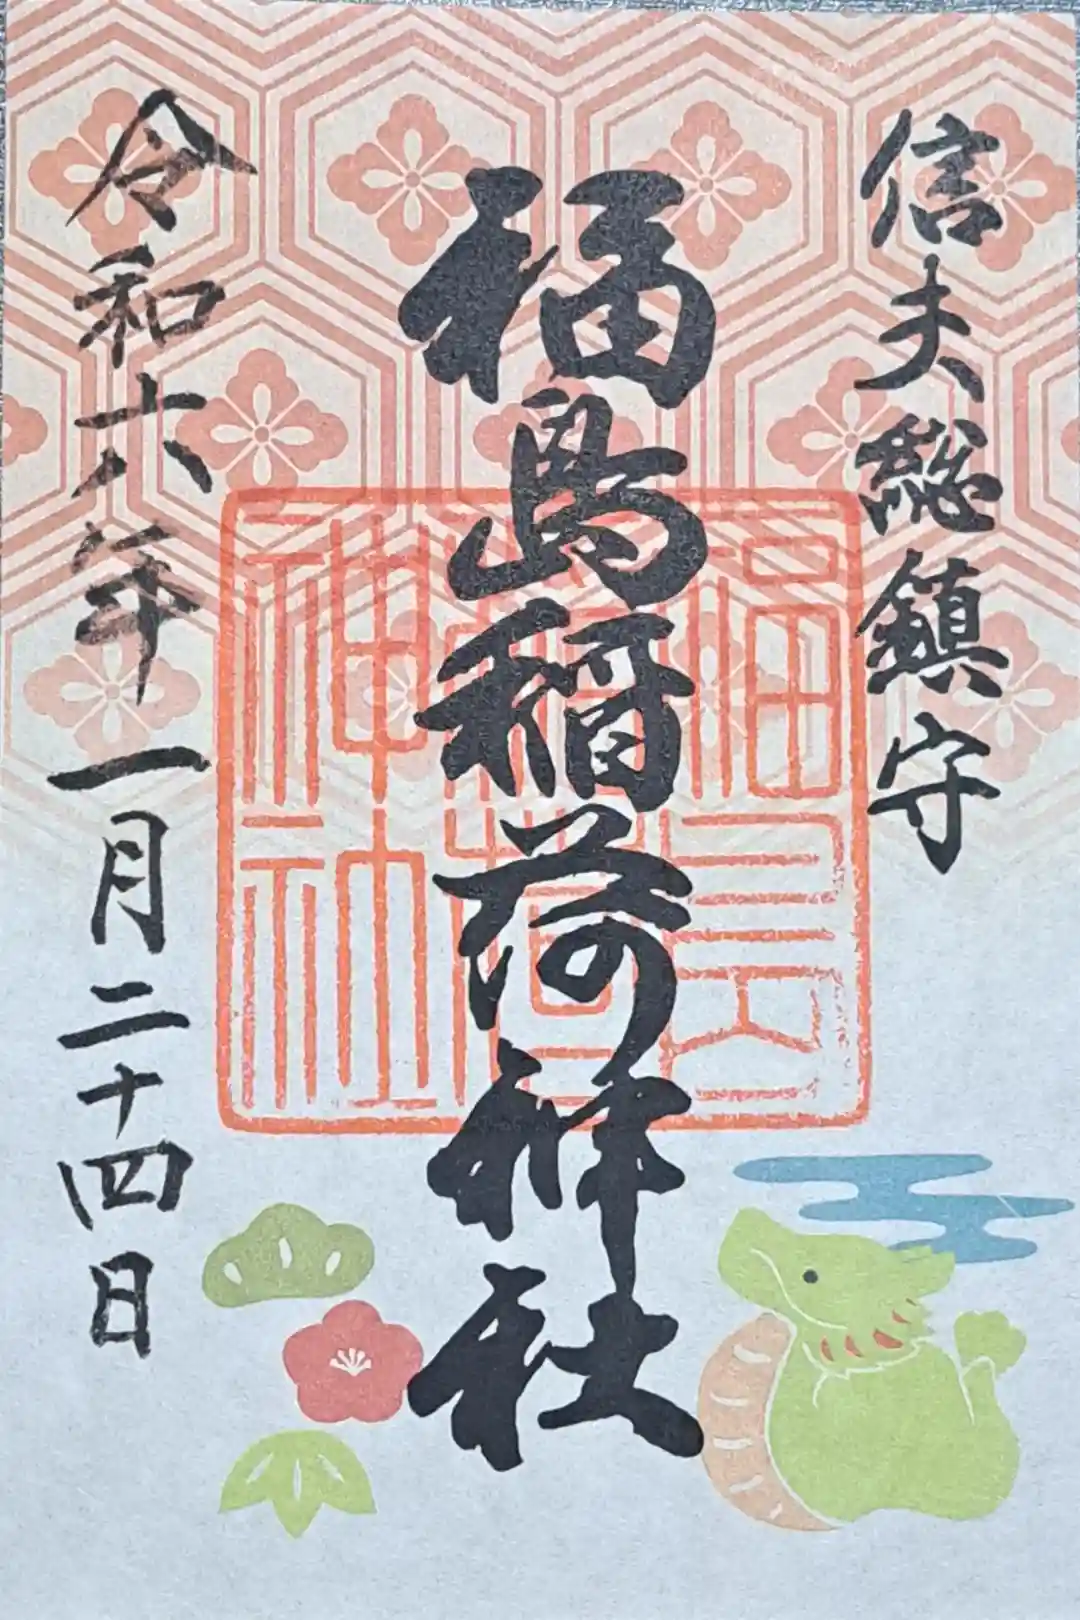 信夫総鎮守
福島稲荷神社
福島稲荷神社
令和六年一月二十四日